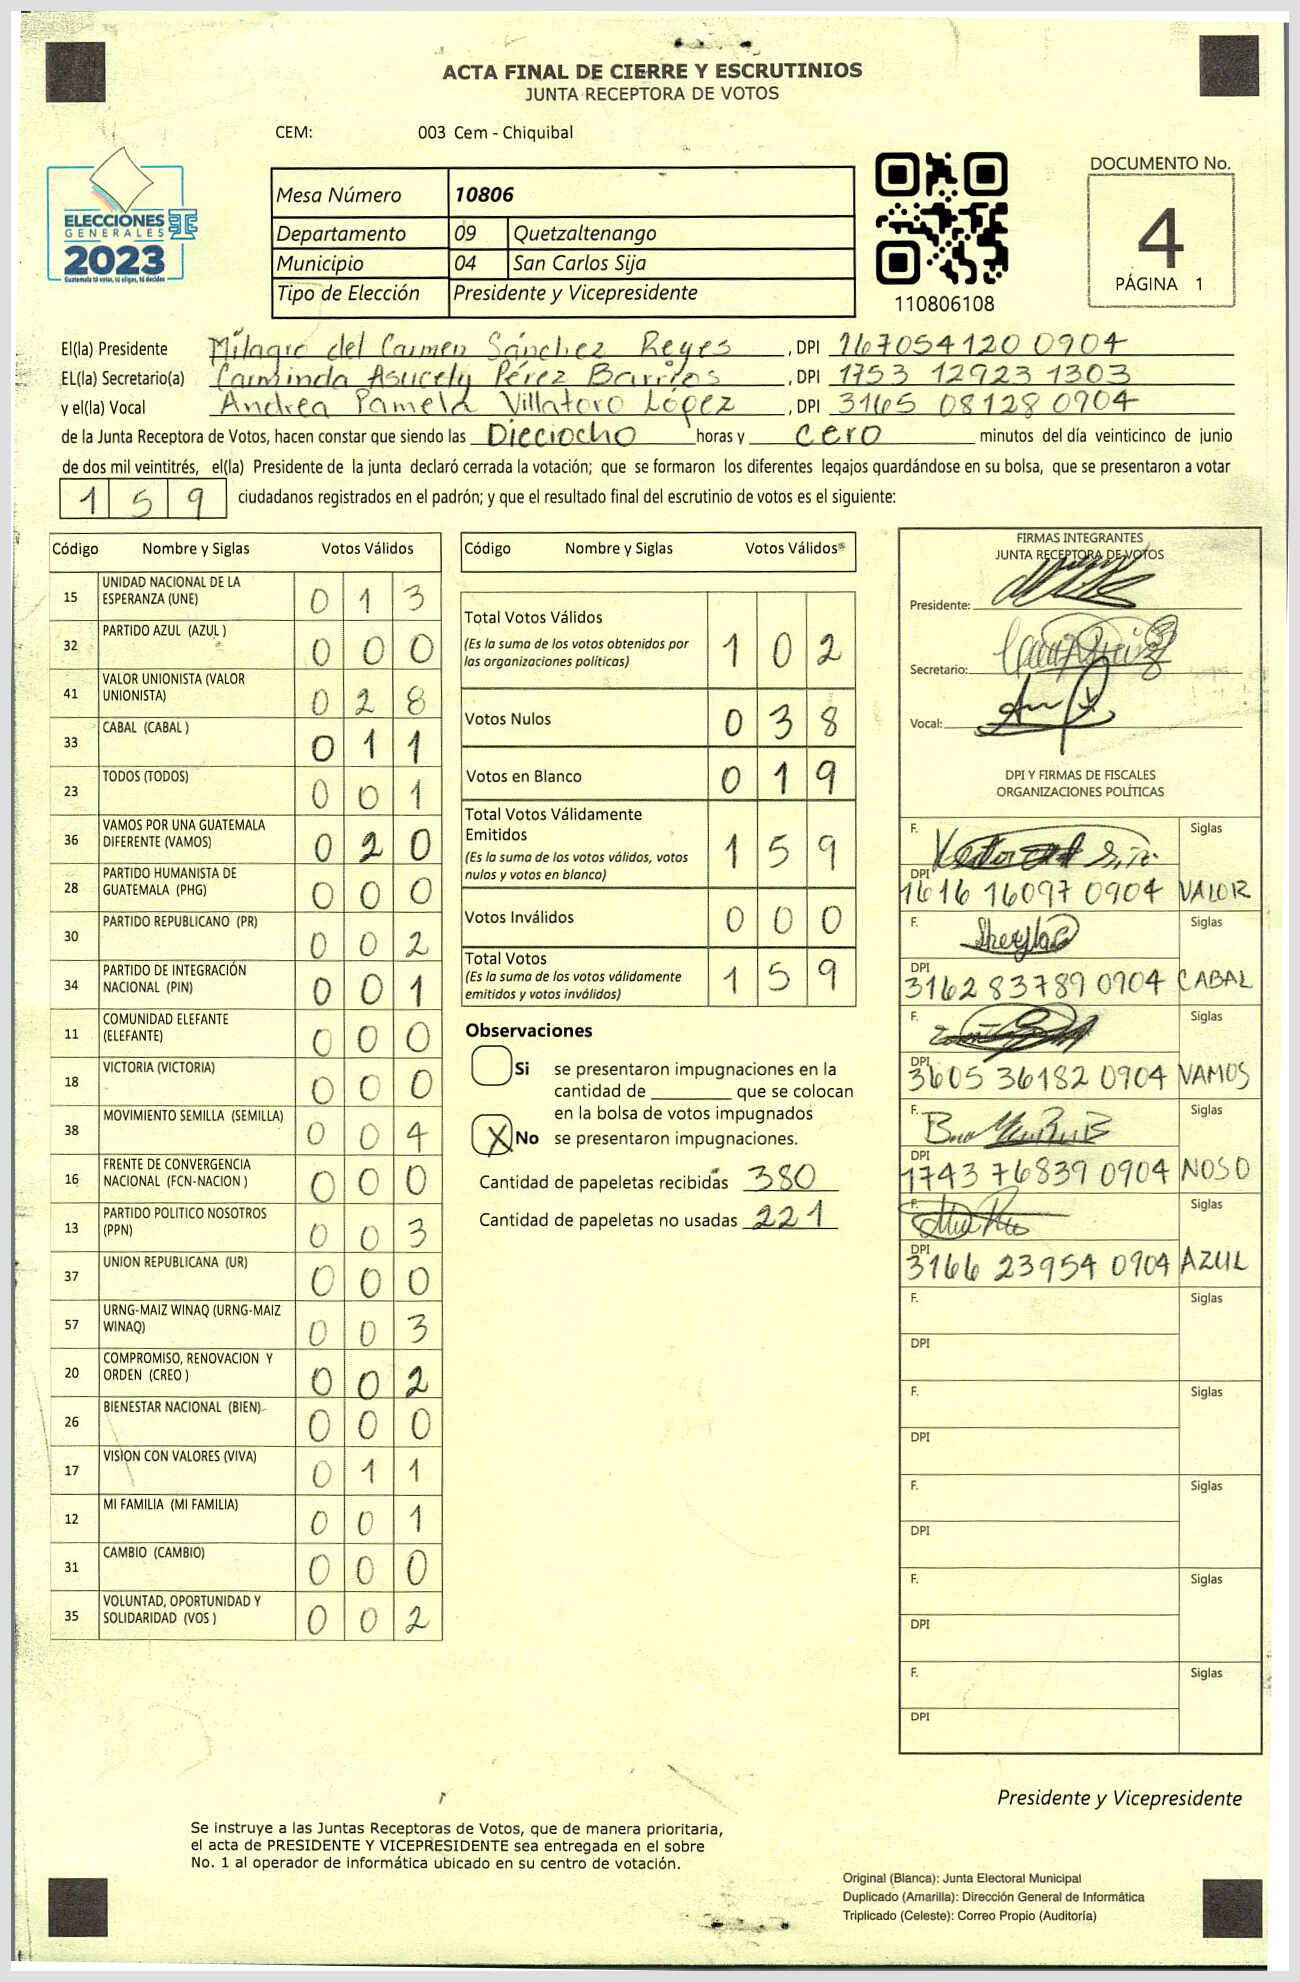 ACTA FINAL DE CIERRE Y ESCRUTINIOS
JUNTA RECEPTORA DE VOTOS
CEM: 003 Cem - Chiquibal
ELECCIONES
GENERALES
2023
Guatemala tú votas, tú eliges, tú decides
Mesa Número 10806
Departamento 09 Quetzaltenango
Municipio 04 San Carlos Sija
Tipo de Elección Presidente y Vicepresidente
110806108
DOCUMENTO No.
4
PÁGINA 1
El(la) Presidente Milagro del Carmen Sánchez Reyes, DPI 167054120 0904
EL(la) Secretario(a) Carminda Asucely Pérez Barrios, DPI 1753 12923 1303
y el(la) Vocal Andrea Pamela Villatoro López, DPI 3165 08128 0904
de la Junta Receptora de Votos, hacen constar que siendo las Dieciocho horas y cero minutos del día veinticinco de junio
de dos mil veintitrés, el(la) Presidente de la junta declaró cerrada la votación; que se formaron los diferentes legajos guardándose en su bolsa, que se presentaron a votar
159 ciudadanos registrados en el padrón; y que el resultado final del escrutinio de votos es el siguiente:
Código Nombre y Siglas Votos Válidos
15 UNIDAD NACIONAL DE LA ESPERANZA (UNE) 0 1 3
32 PARTIDO AZUL (AZUL ) 0 0 0
41 VALOR UNIONISTA (VALOR UNIONISTA) 0 2 8
33 CABAL (CABAL ) 0 1 1
23 TODOS (TODOS) 0 0 1
36 VAMOS POR UNA GUATEMALA DIFERENTE (VAMOS) 0 2 0
28 PARTIDO HUMANISTA DE GUATEMALA (PHG) 0 0 0
30 PARTIDO REPUBLICANO (PR) 0 0 2
34 PARTIDO DE INTEGRACIÓN NACIONAL (PIN) 0 0 1
11 COMUNIDAD ELEFANTE (ELEFANTE) 0 0 0
18 VICTORIA (VICTORIA) 0 0 0
38 MOVIMIENTO SEMILLA (SEMILLA) 0 0 4
16 FRENTE DE CONVERGENCIA NACIONAL (FCN-NACION ) 0 0 0
13 PARTIDO POLITICO NOSOTROS (PPN) 0 0 3
37 UNION REPUBLICANA (UR) 0 0 0
57 URNG-MAIZ WINAQ (URNG-MAIZ WINAQ) 0 0 3
20 COMPROMISO, RENOVACION Y ORDEN (CREO ) 0 0 2
26 BIENESTAR NACIONAL (BIEN) 0 0 0
17 VISION CON VALORES (VIVA) 0 1 1
12 MI FAMILIA (MI FAMILIA) 0 0 1
31 CAMBIO (CAMBIO) 0 0 0
35 VOLUNTAD, OPORTUNIDAD Y SOLIDARIDAD (VOS ) 0 0 2
Código Nombre y Siglas Votos Válidos
Total Votos Válidos
(Es la suma de los votos obtenidos por
las organizaciones políticas) 1 0 2
Votos Nulos 0 3 8
Votos en Blanco 0 1 9
Total Votos Válidamente
Emitidos
(Es la suma de los votos válidos, votos
nulos y votos en blanco) 1 5 9
Votos Inválidos 0 0 0
Total Votos
(Es la suma de los votos válidamente
emitidos y votos inválidos) 1 5 9
Observaciones
Si se presentaron impugnaciones en la
cantidad de ________ que se colocan
en la bolsa de votos impugnados
X No se presentaron impugnaciones.
Cantidad de papeletas recibidas 380
Cantidad de papeletas no usadas 221
FIRMAS INTEGRANTES
JUNTA RECEPTORA DE VOTOS
Presidente:
Secretario:
Vocal:
DPI Y FIRMAS DE FISCALES
ORGANIZACIONES POLÍTICAS
F. Siglas
DPI 1616 16097 0904 VALOR
F. Siglas
DPI 3162 83789 0904 CABAL
F. Siglas
DPI 3605 36182 0904 VAMOS
F. Siglas
DPI 1743 76839 0904 NOSO
F. Siglas
DPI 3166 23954 0904 AZUL
F. Siglas
DPI
F. Siglas
DPI
F. Siglas
DPI
F. Siglas
DPI
F. Siglas
DPI
Presidente y Vicepresidente
Se instruye a las Juntas Receptoras de Votos, que de manera prioritaria,
el acta de PRESIDENTE Y VICEPRESIDENTE sea entregada en el sobre
No. 1 al operador de informática ubicado en su centro de votación.
Original (Blanca): Junta Electoral Municipal
Duplicado (Amarilla): Dirección General de Informática
Triplicado (Celeste): Correo Propio (Auditoría)